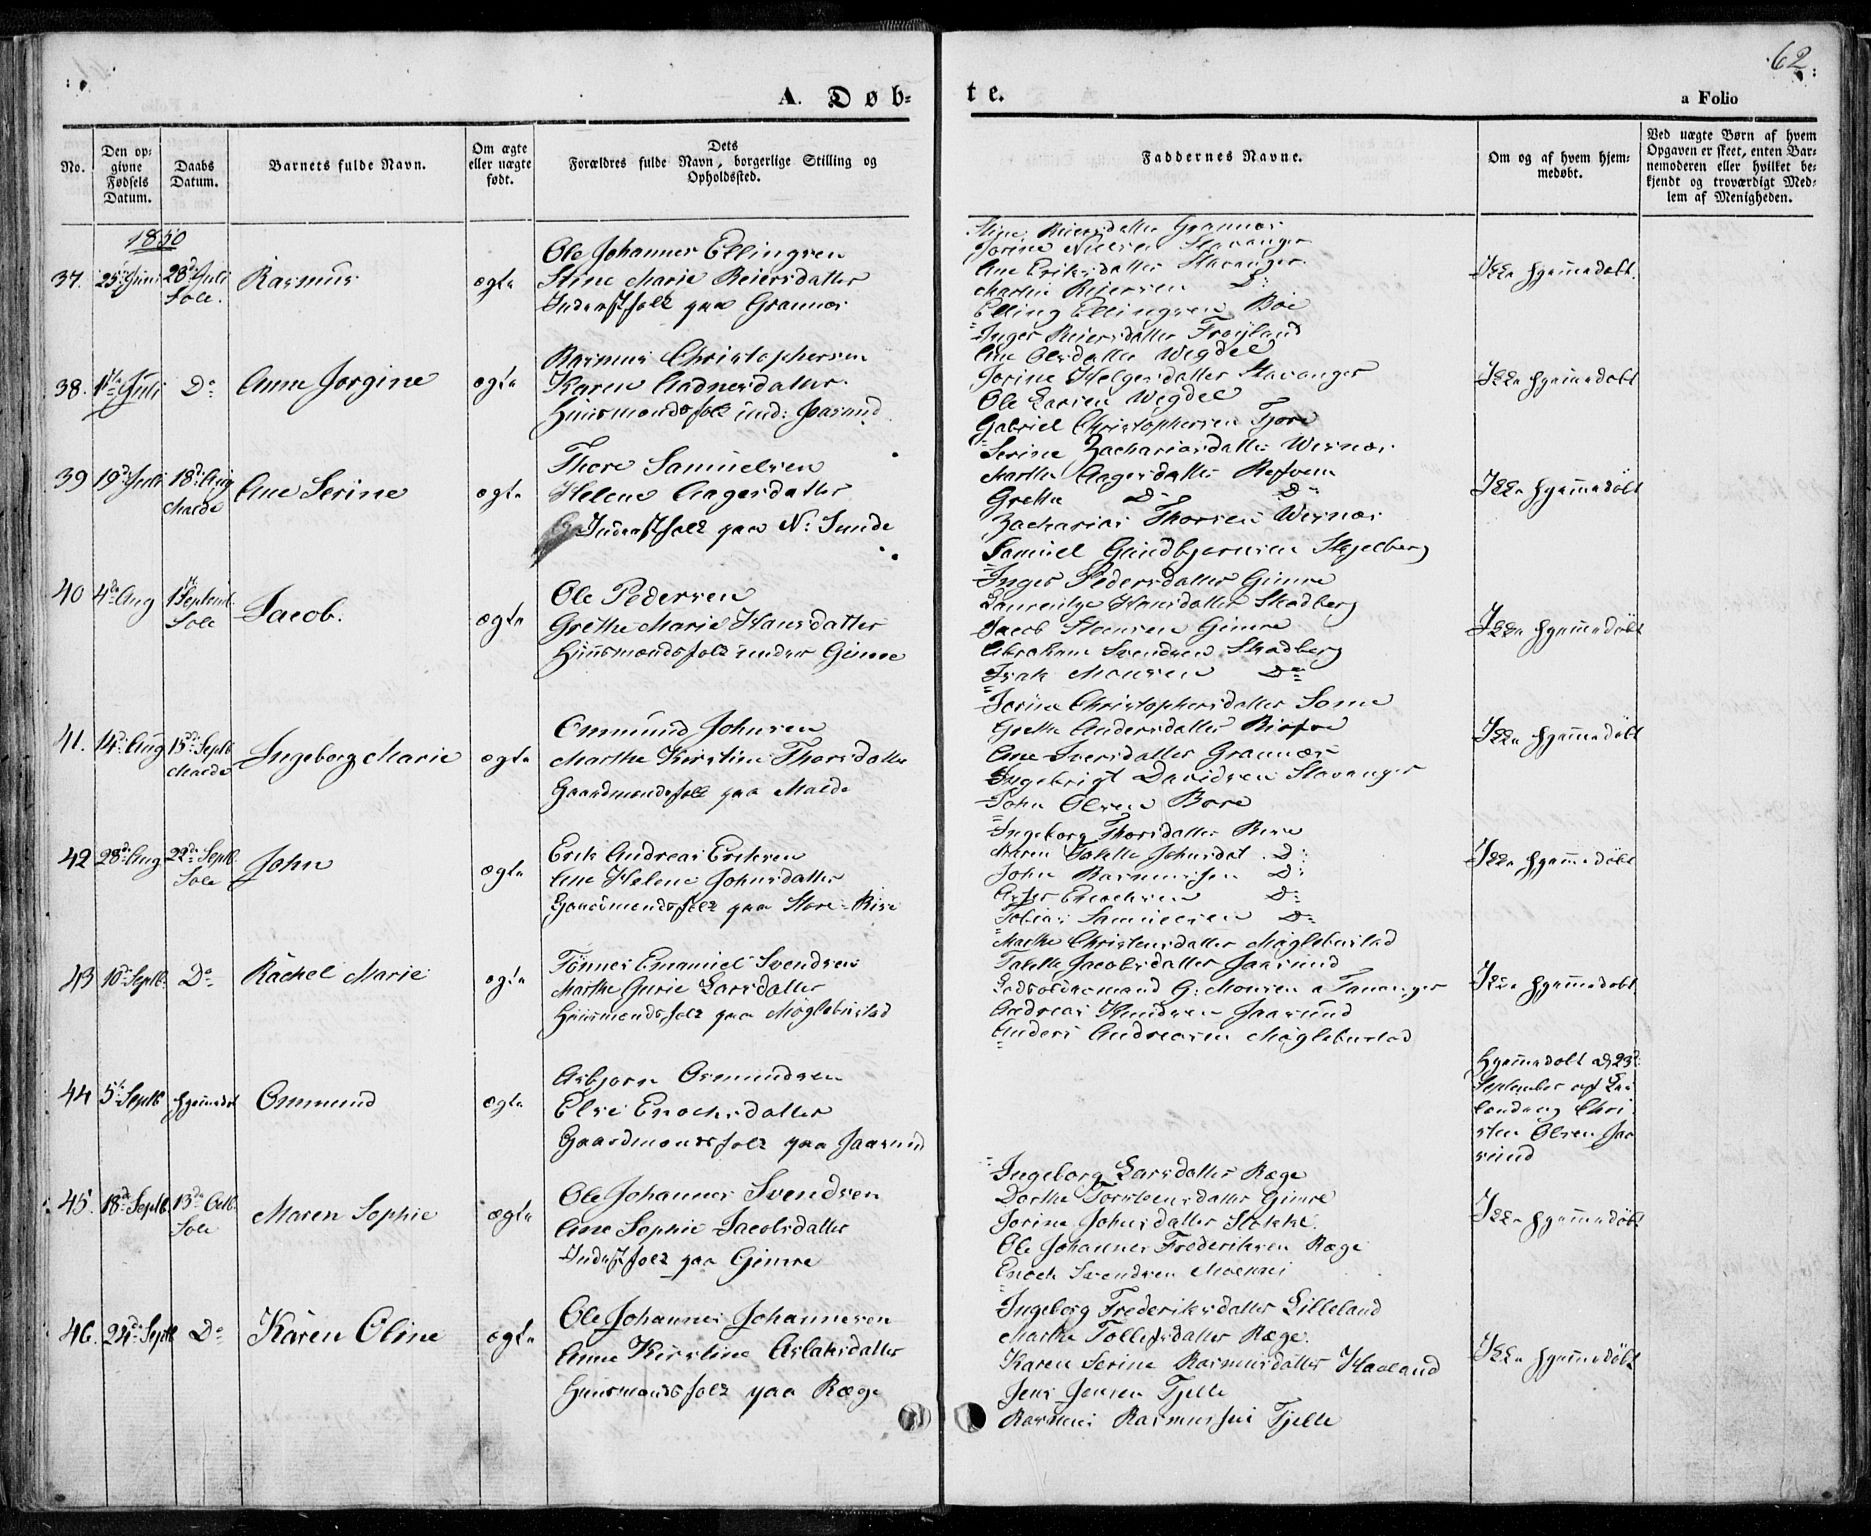 62.
A. Døb-
te.
a Folio
No.
Den op-
givne
Fødsels
Datum.
Daabs
Datum.
Barnets fulde Navn.
Om ægte
eller uægte
født.
Dets
Forældres fulde Navn, borgerlige Stilling og
Opholdssted.
Faddernes Navne.
Om og af hvem hjem-
medøbt.
Ved uægte Børn af hvem
Opgaven er skeet, enten Bar-
nemoderen eller hvilket be-
kjendt og troværdigt Med-
lem af Menigheden.
1850
37. 25de Juni 28de Juli
Sole.
Rasmus
ægte
Ole Johannes Ellingsen
Stine Marie Reiersdatter
Inderstfolk paa Grannes
Stine Reiersdatter Grannes
Jorine Nielsen Stavanger
Ane Eriksdatter Stavanger
Martin Reiersen Do
Elling Ellingsen Bøe
Ikke hjemmedøbt.
38. 1te Juli Do
Anne Jorgine
ægte
Rasmus Christophersen
Karen Aadnesdatter
Huusmandsfolk und: Jaasund
Inger Reiersdatter Frøiland
Ane Olsdatter Wigdel
Jorine Helgesdatter Stavanger
Ole Larsen Wigdel
Gabriel Christophersen Tjora
Ikke hjemmedøbt
39 19de Juli 18de Aug
Malde
Ane Serine
ægte
Thore Samuelsen
Helene Aagesdatter
Inderstfolk paa N: Sunde
Serine Zachariasdatter Wisnæs
Marthe Aagesdatter Refsvem
Grethe Do Do
Zacharias Thorsen Wisnæs
Samuel Gundbjørnsen Stjelberg
Ikke hjemmedøbt
40 4de Aug 1te Septemb.
Sole
Jacob.
ægte
Ole Pedersen
Grethe Marie Hansdatter
Huusmandsfolk under Gimre
Inger Pedersdatter Gimre
Laurentze Hansdatter Skadberg
Jacob Steensen Gimre
Abraham Svendsen Skadberg
Isak Monsen Do
Ikke hjemmedøbt
41. 14de Aug 15de Septb.
Malde
Ingeborg Marie
ægte
Ommund Johnsen
Marthe Kirstine Thorsdatter
Gaardmandsfolk paa Malde
Jorine Christophersdatter Some
Grethe Andersdatter
Ane Iversdatter Grannes
Ingebrigt Davidsen Stavanger
John Olsen Bore
Ikke hjemmedøbt
42 28de Aug 22de Septb.
Sole
John
ægte
Erik Andreas Eriksen
Ane Helene Johnsdatter
Gaardmandsfolk paa Store-Rise
Ingeborg Thorsdatter Rise
Maren Talette Johnsdat. Do
John Rasmussen Do
Asser Enochsen Do
Tobias Samuelsen Do
Ikke hjemmedøbt
43 10de Septb. Do
Rachel Marie
ægte
Tönnes Emanuel Svendsen
Marthe Gurie Larsdatter
Huusmandsfolk paa Møglebustad
Marthe Christensdatter Møglebustad
Talette Jacobsdatter Jaasund
Lodsoldermand G: Monsen a Tananger
Andreas Knudsen Jaasund
Anders Andreasen Møglebustad
Ikke hjemmedøbt
44 5te Septb hjemmedøbt
Ommund
ægte
Asbjørn Osmundsen
Else Enochsdatter
Gaardmandsfolk paa Jaasund
Hjemmedøbt d: 23de
September af
Chri-
sten Olsen Jaa
sund
45. 18de Septb. 13de Octb.
Sole
Maren Sophie
ægte
Ole Johannes Svendsen
Ane Sophie Jacobsdatter
Inderstfolk paa Gimre
Ingeborg Larsdatter Ræge
Dorthe Torsteensdatter Gimre
Jorine Johnsdatter Stokke.
Ole Johannes Frederiksen Ræge
Enoch Svendsen
Ikke hjemmedøbt
46. 24de Septb Do
Karen Oline
ægte
Ole Johannes Johannesen
Anne Kirstine Aslaksdatter
Huusmandsfolk paa Ræge
Ingeborg Frederiksdatter Lilleland
Marthe Tollefsdatter Ræge.
Karen Serine Rasmusdatter Haaland
Jens Jensen Tjelle
Rasmus Rasmussen Tjelle
Ikke hjemmedøbt